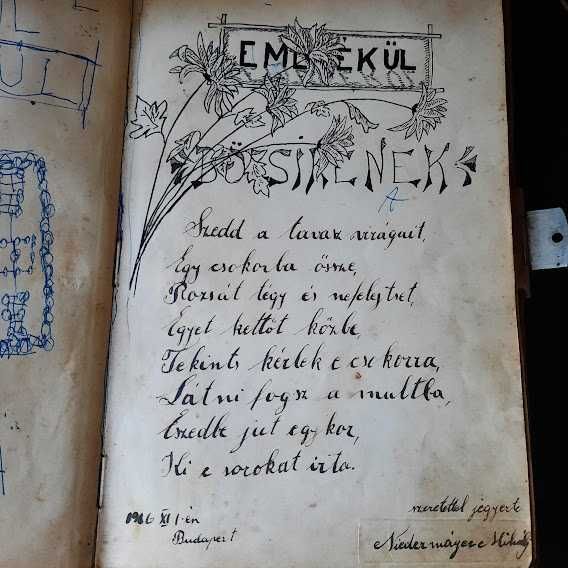 EMLÉKÜL
BÖSIKÉNEK
Szedd a tavasz virágait,
Egy csokorba össze,
Rozsát tégy és nefelejtset,
Egyet kettőt közbe,
Tekints kérlek e csokorra,
Látni fogsz a multba,
Eszedbe jut egykor,
Ki e sorokat irta.
szeretettel jegyezte
XI 1-én
Budapest
Niedermáyer Mihály